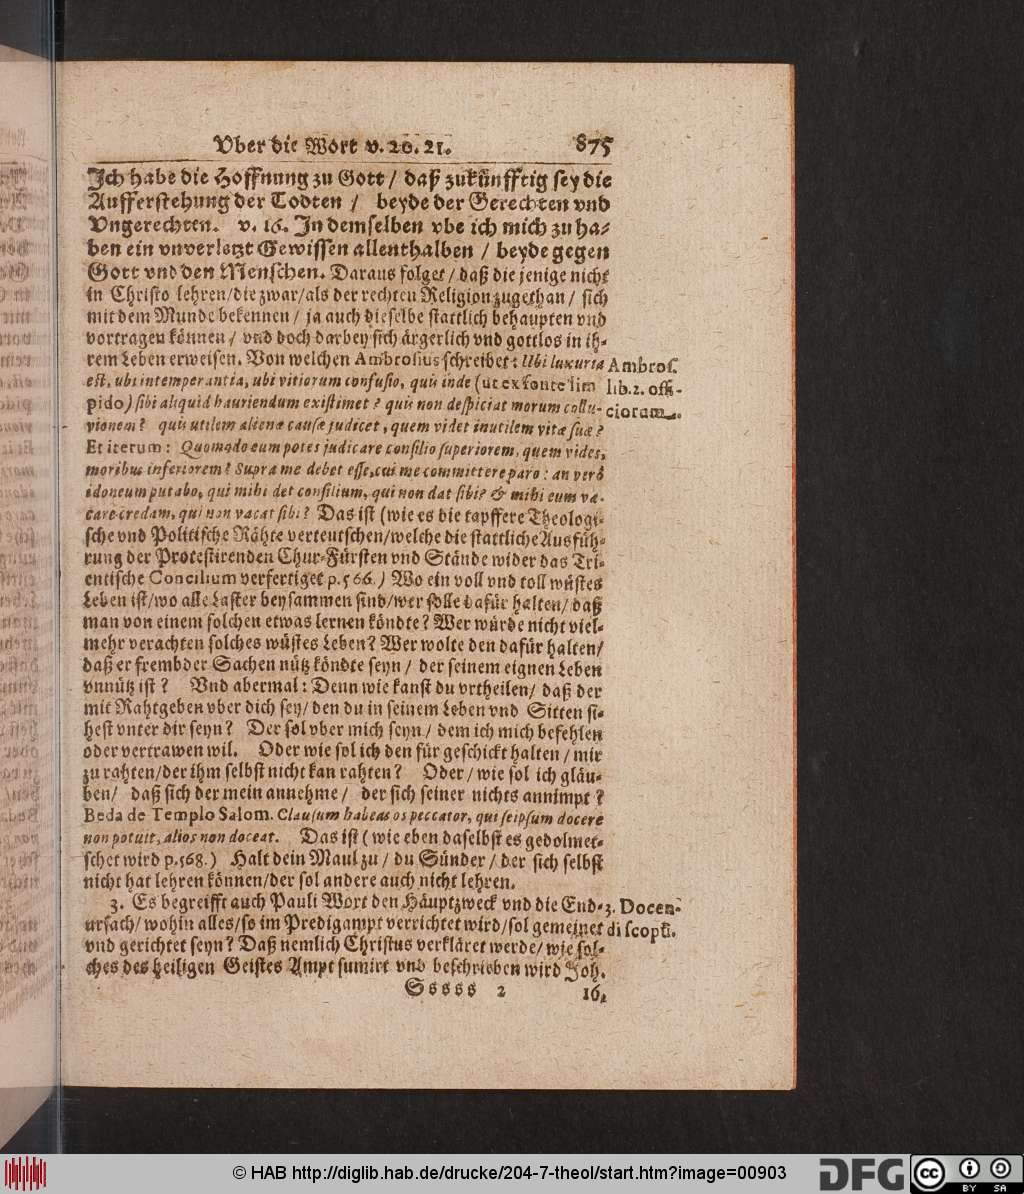 Vber die Wort v. 20. 21. 875
Jch habe die Hoffnung zu Gott / daß zukünfftig sey die
Aufferstehung der Todten / beyde der Gerechten vnd
Vngerechten. v. 16. In demselben vbe ich mich zu ha-
ben ein vnverletzt Gewissen allenthalben / beyde gegen
Gott vnd den Menschen. Daraus folget / daß die jenige nicht
in Christo lehren/die zwar/als der rechten Religion zugethan / sich
mit dem Munde bekennen / ja auch dieselbe stattlich behaupten vnd
vortragen können / vnd doch darbey sich ärgerlich vnd gottlos in ih-
rem Leben erweisen. Von welchen Ambrosius schreibet: Ubi luxuria
est, ubi intemperantia, ubi vitiorum confusio, quis inde (ut ex fonte lim
pido) sibi aliquid hauriendum existimet? quis non despiciat morum collu-
vionem? quis utilem alienæ causæ judicet, quem videt inutilem vitæ suæ?
Et iterum: Quomodo eum potes judicare consilio superiorem, quem vides,
moribus inferiorem? Supra me debet esse, cui me committere paro: an verò
idoneum putabo, qui mihi det consilium, qui non dat sibi? & mihi eum va-
care credam, qui non vacat sibi? Das ist (wie es die tapffere Theologi-
sche vnd Politische Rähte verteutschen/welche die stattliche Ausfüh-
rung der Protestirenden Chur-Fürsten vnd Stände wider das Tri-
entische Concilium verfertiget p. 566.) Wo ein voll vnd toll wüstes
Leben ist/wo alle Laster beysammen sind/wer solle dafür halten/ daß
man von einem solchen etwas lernen köndte? Wer würde nicht viel-
mehr verachten solches wüstes Leben? Wer wolte den dafür halten/
daß er frembder Sachen nütz köndte seyn / der seinem eignen Leben
vnnütz ist? Vnd abermal: Denn wie kanst du vrtheilen/ daß der
mit Rahtgeben vber dich sey/ den du in seinem Leben vnd Sitten si-
hest vnter dir seyn? Der sol vber mich seyn / dem ich mich befehlen
oder vertrawen wil. Oder wie sol ich den für geschickt halten / mir
zu rahten/der ihm selbst nicht kan rahten? Oder / wie sol ich gläu-
ben/ daß sich der mein annehme / der sich seiner nichts annimpt?
Beda de Templo Salom. Clausum habeas os peccator, qui seipsum docere
non potuit, alios non doceat. Das ist (wie eben daselbst es gedolmet-
schet wird p. 568.) Halt dein Maul zu / du Sünder / der sich selbst
nicht hat lehren können/der sol andere auch nicht lehren.
3. Es begreifft auch Pauli Wort den Häuptzweck vnd die End-
ursach/ wohin alles/so im Predigampt verrichtet wird/sol gemeinet
vnd gerichtet seyn? Daß nemlich Christus verkläret werde/ wie sol-
ches des heiligen Geistes Ampt sumirt vnd beschrieben wird Joh.
Sssss 2 16,
Ambros.
lib. 2. offi-
ciorum.
3. Docen-
di scopū.
© HAB http://diglib.hab.de/drucke/204-7-theol/start.htm?image=00903
DFG
cc BY SA